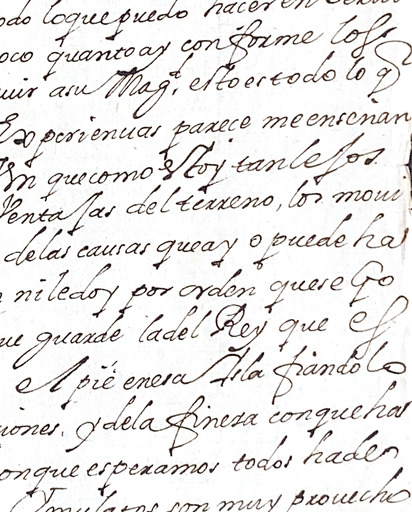 odo loque puedo hacer en
oco quanto ay conforme los
uir a su Mag.d, esto es todo lo q
Experiencias parece me enseñan
Un que como estoy tan lejos
Ventajas del terreno, los movi
de las causas que ay o puede ha
ni le doy por orden que se go
ue guarde la del Rey que es
A pie en esa Isla fiandolo
iones, y de la fineza con que has
onque esperamos todos ha de
mulatos son muy provecho